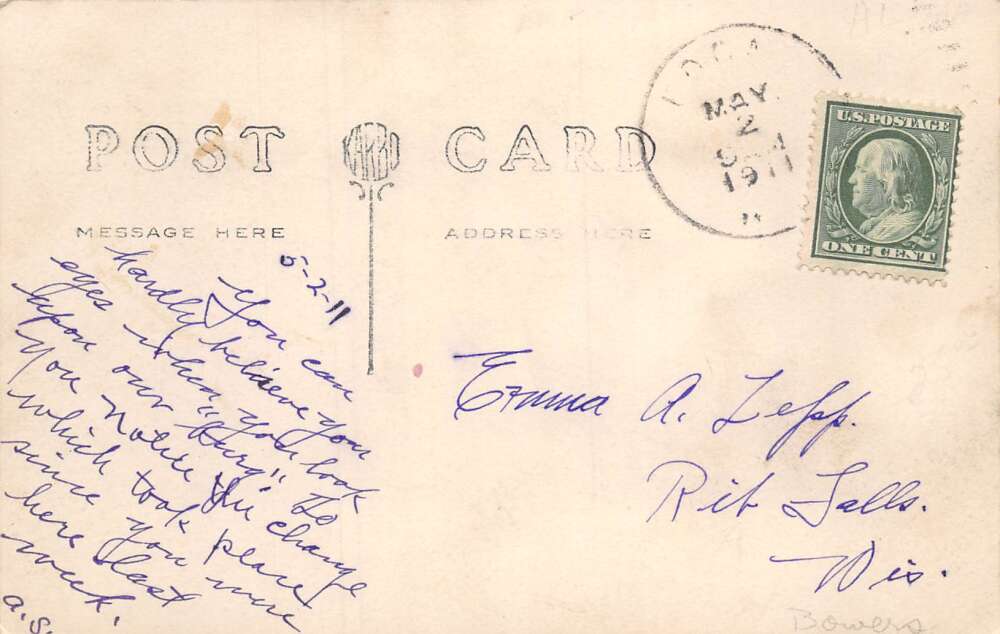 POST CARD
MESSAGE HERE
ADDRESS HERE
MAY
2
1911
U.S.POSTAGE
ONE CENT
5-2-11
You can
hardly believe your
eyes when you look
upon our "Burg". Do
you notice the change
which took place
since you were
here last
week.
a.S.
Emma A. Zepp.
Rib Falls.
Wis.
Bowers